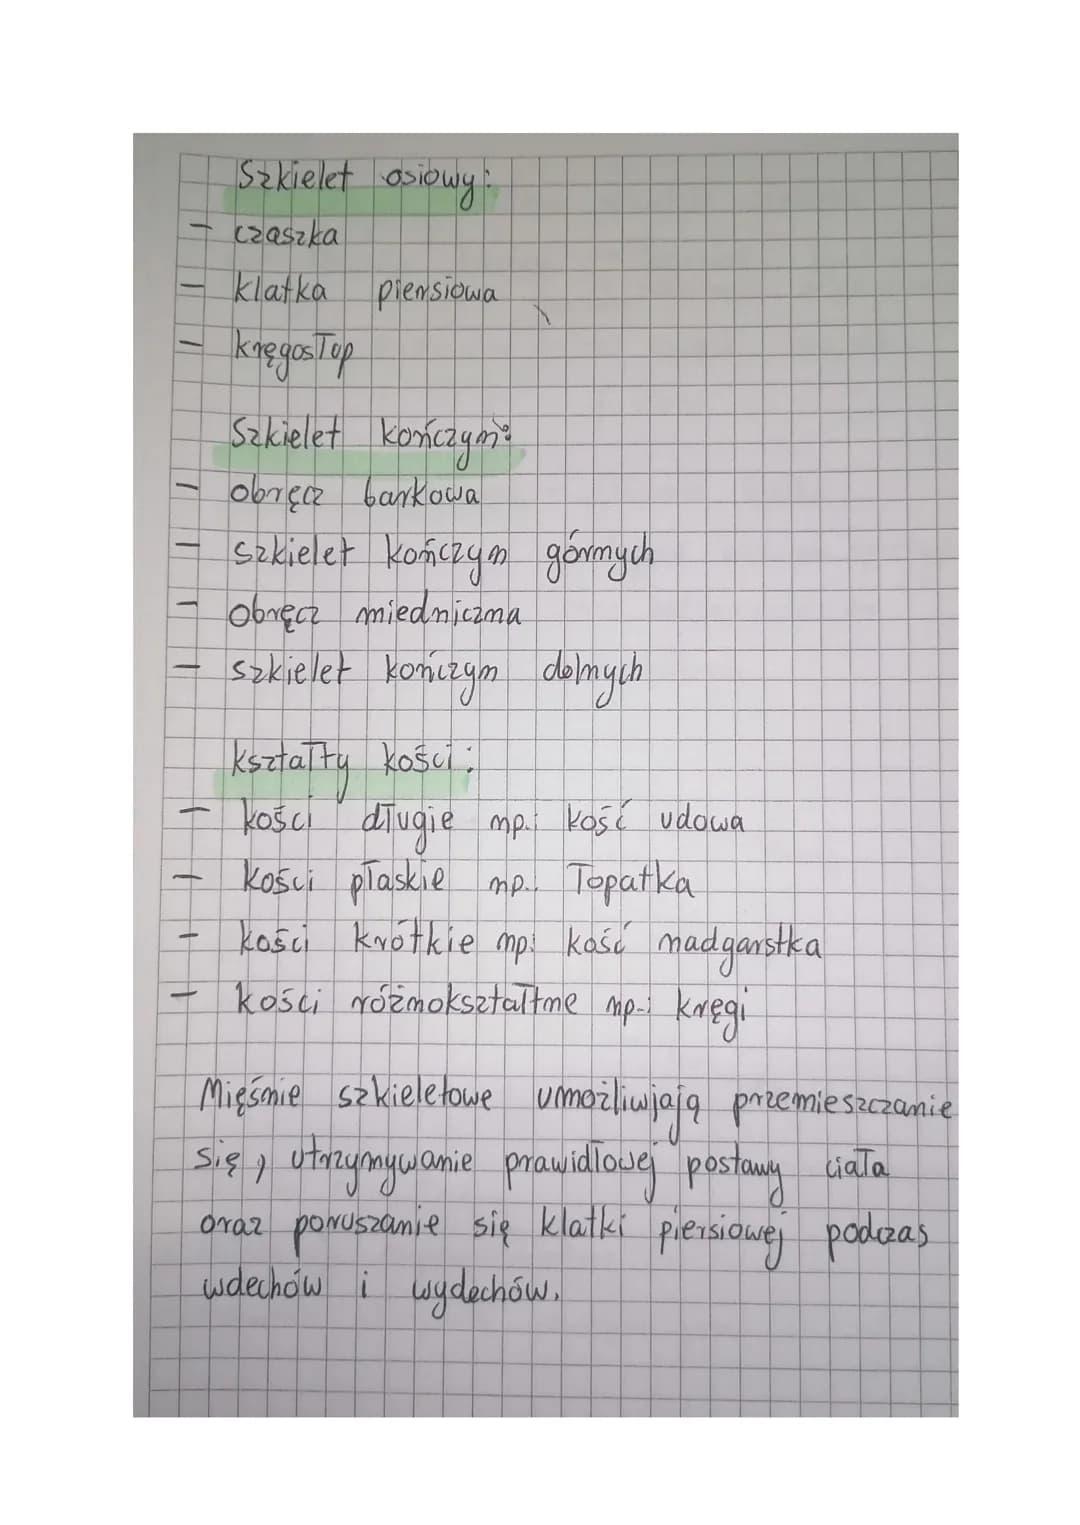 Szkielet osiowy:
- czaszka
- klatka piersiowa
- kręgosłup
Szkielet kończyn:
- obręcz barkowa
- szkielet kończyn górnych
- obręcz miedniczna
- szkielet kończyn dolnych
kształty kości:
- kości długie np.: kość udowa
- kości płaskie np.: łopatka
- kości krótkie np: kość nadgarstka
- kości różnokształtne np.: kręgi
Mięśnie szkieletowe umożliwjają przemieszczanie
się, utrzymywanie prawidłowej postawy ciała
oraz poruszanie się klatki piersiowej podczas
wdechów i wydechów.